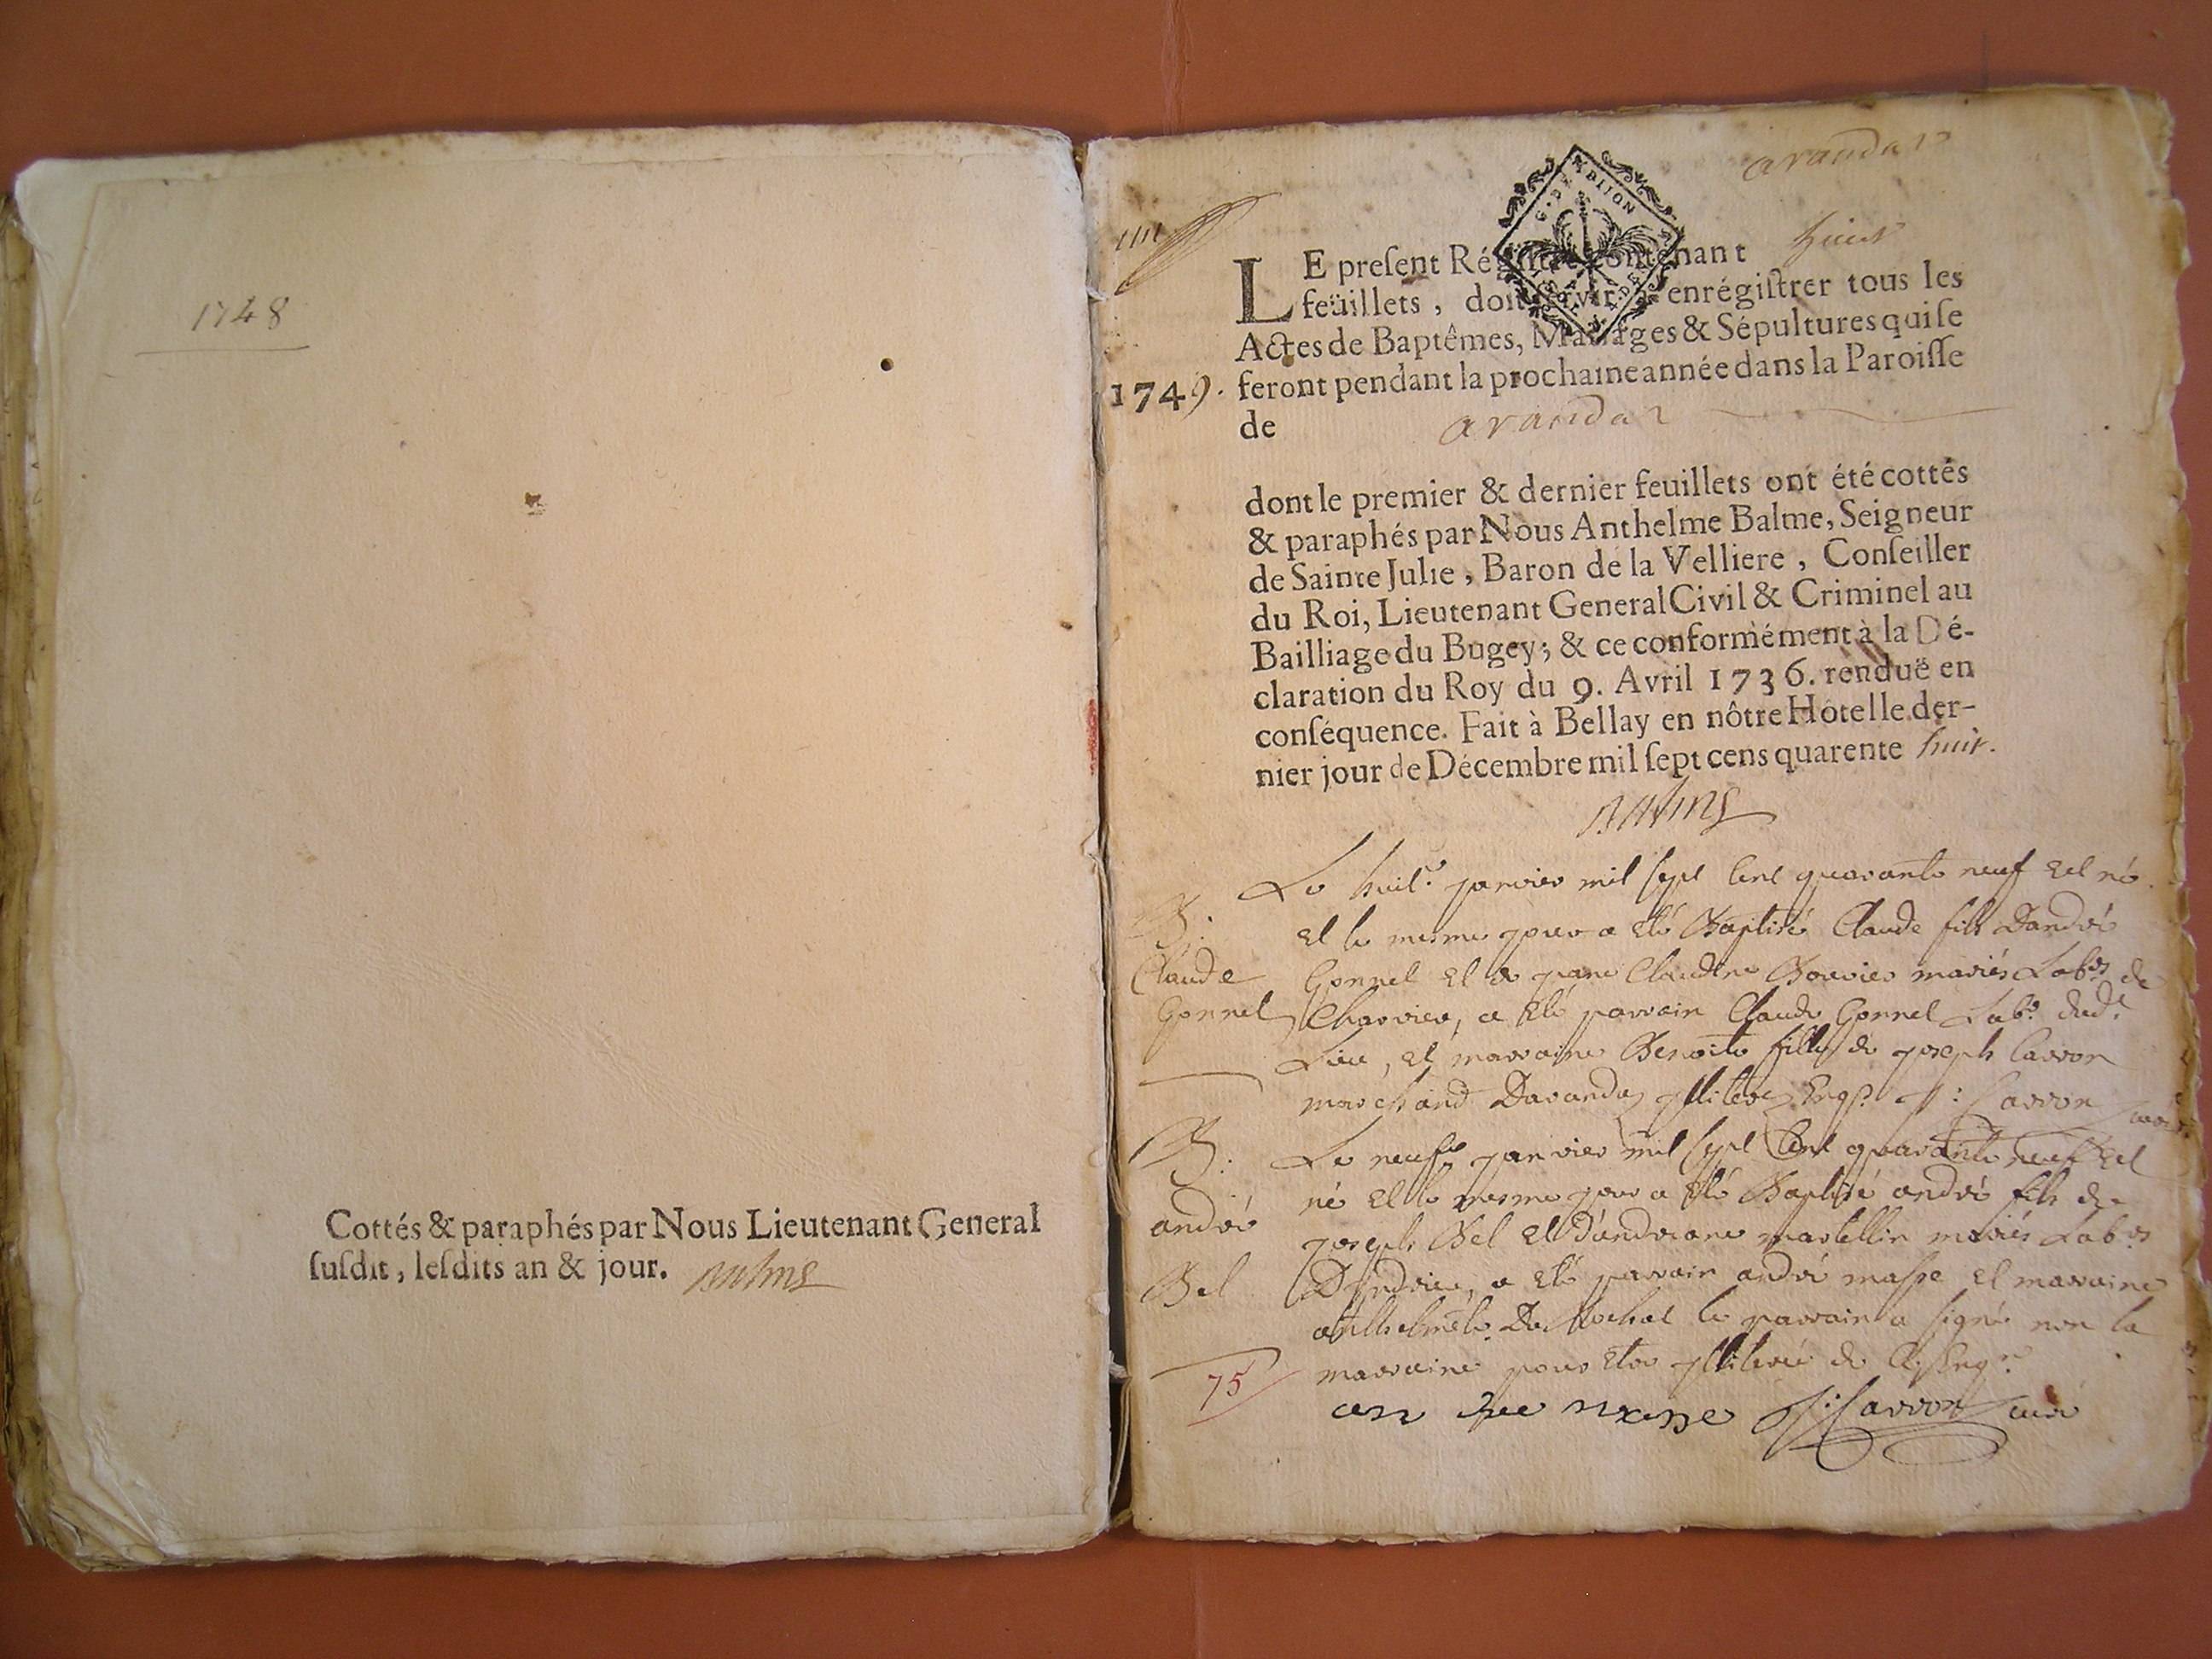 1748
Cottés & paraphés par Nous Lieutenant General
ſuſdit, leſdits an & jour. Balme
arandas
G. DE DIJON
LE preſent Régiſtre contenant huit
feüillets, doit ſervir à enrégiſtrer tous les
Actes de Baptêmes, Mariages & Sépultures qui ſe
1749. feront pendant la prochaine année dans la Paroiſſe
de arandas
dont le premier & dernier feuillets ont été cottés
& paraphés par Nous Anthelme Balme, Seigneur
de Sainte Julie, Baron de la Velliere, Conſeiller
du Roi, Lieutenant General Civil & Criminel au
Bailliage du Bugey; & ce conformément à la Dé-
claration du Roy du 9. Avril 1736. renduë en
conſéquence. Fait à Bellay en nôtre Hôtel le der-
nier jour de Décembre mil ſept cens quarente huit.
Balme
Le huit.e janvier mil sept cent quarante neuf est né
B: et le mesme jour a eté Baptisé Claude fils Dandré
Claude Gonnel et de jeane Claudine Bouvier mariés Lab.rs de
Gonnel Charvieu, a eté parrain Claude Gonnel Lab.r dud.t
Lieu, et marraine Benoite fille de joseph Carron
marchand Darandas illiterés Enq.s J: Carron curé
B: Le neuf.e janvier mil sept cent quarante neuf est
né et le mesme jour a eté Baptisé andré fils de
andré joseph Bel et d'andreane martellin mariés Lab.rs
Bel Dindrieu, a eté parrain andré masse et marraine
anthelmete Du le parrain a signé non la
75 marraine pour etre illiterée de Enq.se
andre masse J: Carron curé